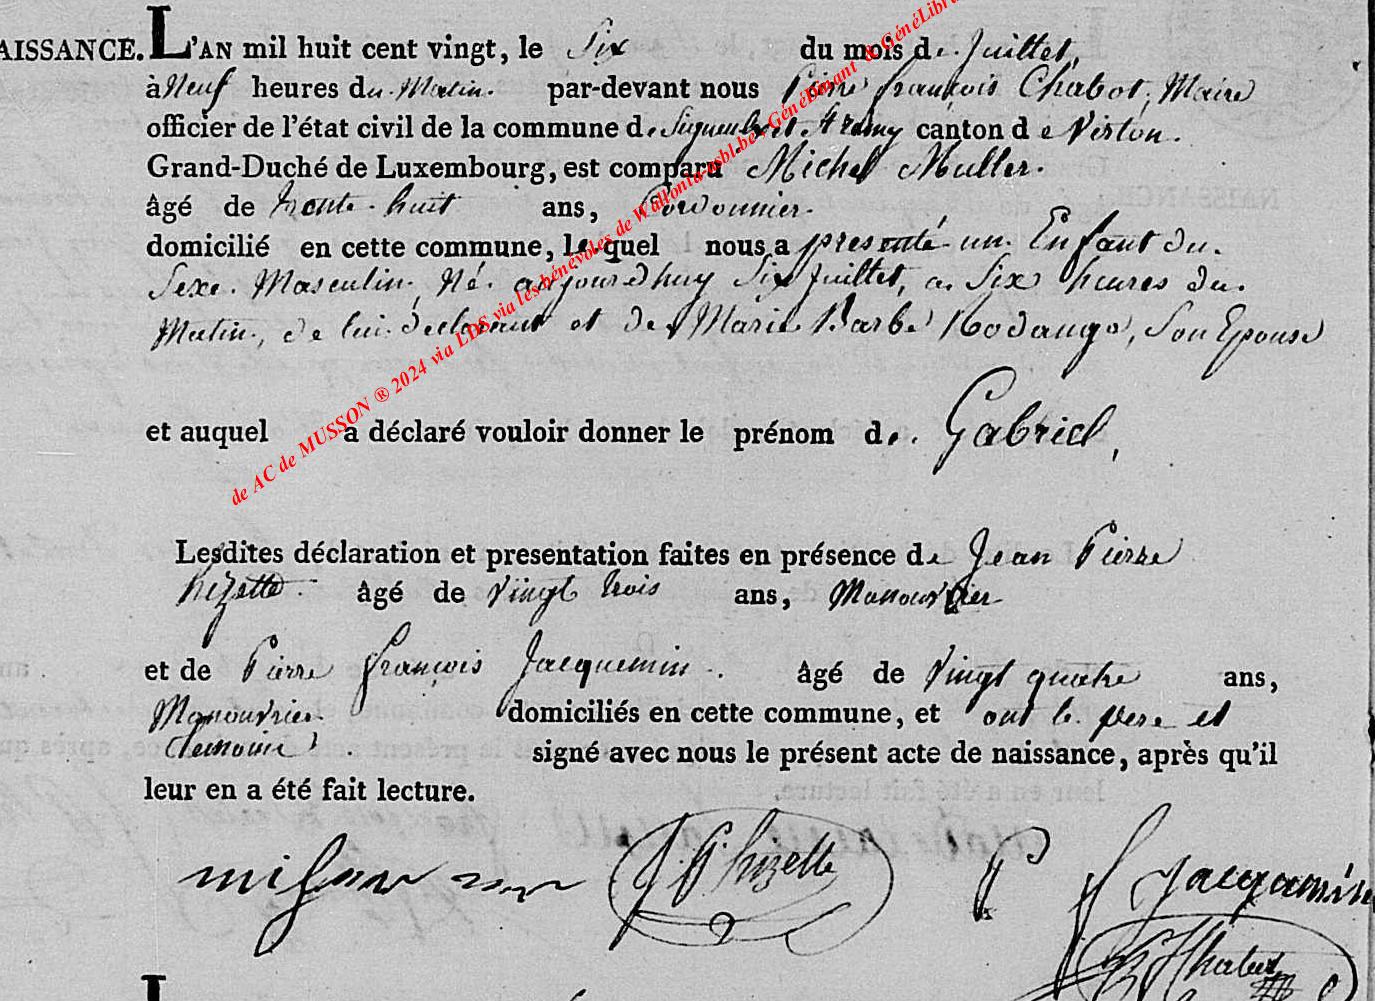 AISSANCE. L'AN mil huit cent vingt, le Six du mois de Juillet,
à Neuf heures du Matin. par-devant nous Pierre françois Chabot, Maire
officier de l'état civil de la commune de et St remy canton de Virton.
Grand-Duché de Luxembourg, est comparu Michel Muller.
âgé de trente-huit ans, Cordonnier.
domicilié en cette commune, lequel nous a presenté un Enfant du.
Sexe. Masculin, Né. aujourdhuy Six Juillet, a Six heures du.
Matin, de lui declarant et de Marie Barbe Rodange, Son Epouse
et auquel a déclaré vouloir donner le prénom de. Gabriel,
Lesdites déclaration et presentation faites en présence de Jean Pierre
hizette. âgé de Vingt trois ans, Manouvrier
et de Pierre françois Jacquemin. âgé de Vingt quatre ans,
Manouvrier. domiciliés en cette commune, et ont le pere et
temoins signé avec nous le présent acte de naissance, après qu'il
leur en a été fait lecture.
J P hizette P f Jacquemin
P F Chabot
de AC de MUSSON ® 2024 via LDS via les bénévoles de Wallonia-asbl.be - GénéDinant & GénéLibra
L